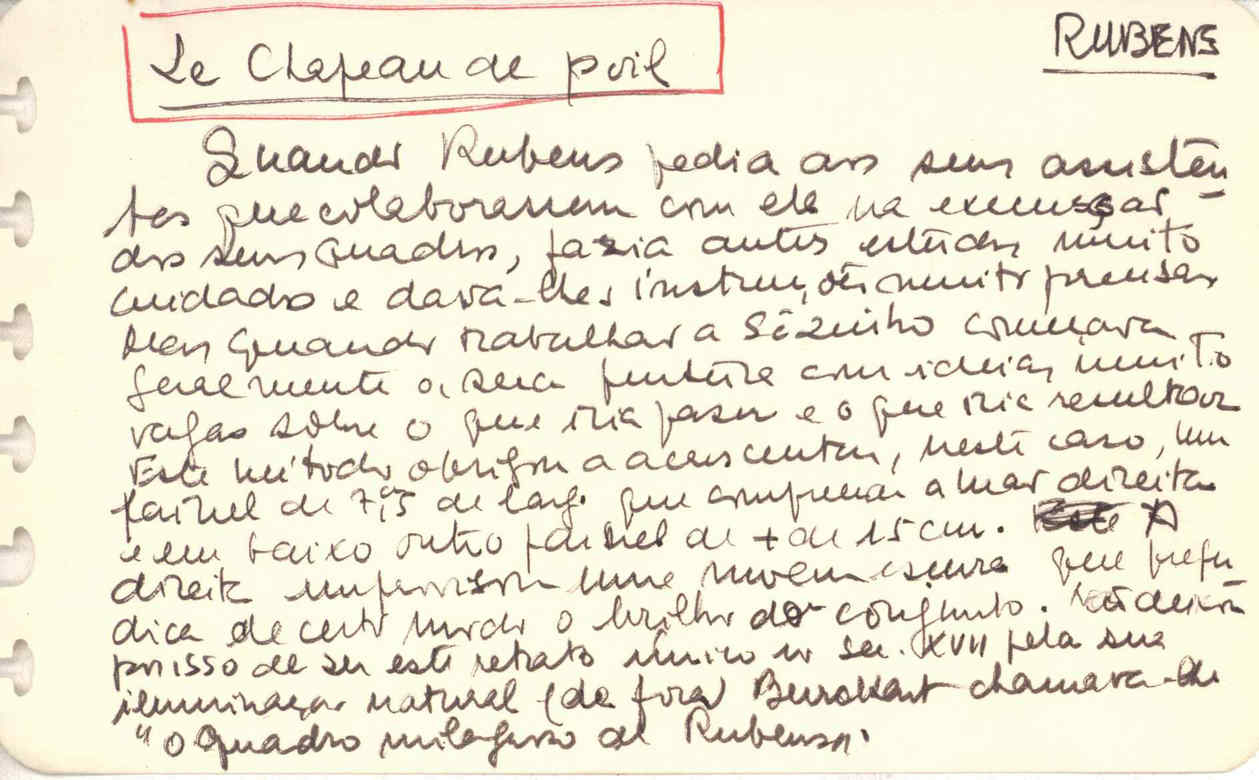 Le Chapeau de poil
RUBENS
Quando Rubens pedia aos seus assisten
tes que colaborassem com ele na execução
dos seus quadros, fazia antes estudos muito
cuidados e dava-lhes instruções muito precisas
Mas quando trabalhava sòzinho começava
geralmente a sua pintura com ideias muito
vagas sobre o que iria fazer e o que iria resultar
Este método obrigou a acrescentar, neste caso, um
painel de 7,5 de larg. que a mão direita
e em baixo outro painel de + de 15 cm. A
direita improvisou uma nuvem escura que preju
dica de certo modo o brilho do conjunto. Não deixa
por isso de ser este retrato único no sec. XVII pela sua
iluminação natural (de fora) Burckhart chamava-lhe
"o quadro milagroso de Rubens".